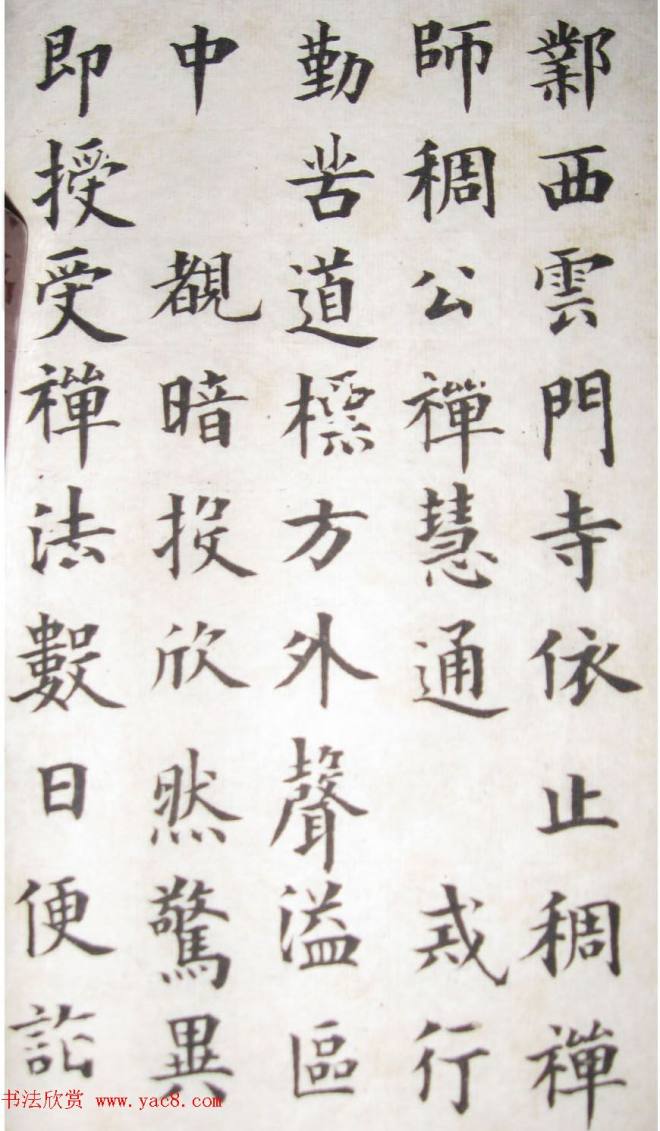 鄴西雲門寺依止稠禪
師稠公禪慧通 戒行
勤苦道標方外聲溢區
中 觀暗投欣然驚異
即授受禪法數日便詣
书法欣赏 www.yac8.com